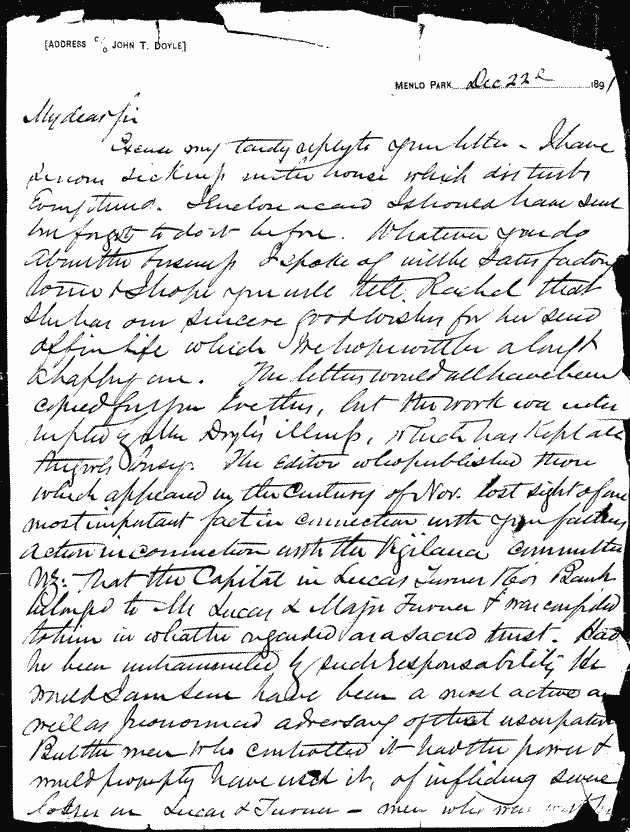 [ADDRESS c/o JOHN T. DOYLE]
MENLO PARK Dec 22d 1891
My dear Sir
Excuse my tardy reply to your letter - I have
serious sickness in the house which disturbs
Everything. I Enclose a card I should have sent
but forgot to do it before. Whatever you do
about the I spoke of will be satisfactory
to me & I hope you will tell Rachel that
she has our sincere good wishes for her send
off in life which we hope will be a long &
a happy one. The letters would all have been
copied for you Ere this, but the work was inter
rupted by Mr Doyle's illness, which has kept all
the girls busy. The Editor who published those
which appeared in the Century of Nov. lost sight of one
most important fact in connection with your fathers
action in connection with the Vigilance Committee
Viz: That the Capital in Lucas Turner & Co's Bank
belonged to Mr Lucas & Major Turner & was confided
to him in what he regarded as a sacred trust. Had
he been untrammeled by such responsability he
would I am sure have been a most active as
well as pronounced adversary of that usurpation
But the men who controlled it had the power &
would properly have used it, of inflicting severe
losses on Lucas & Turner - men who were